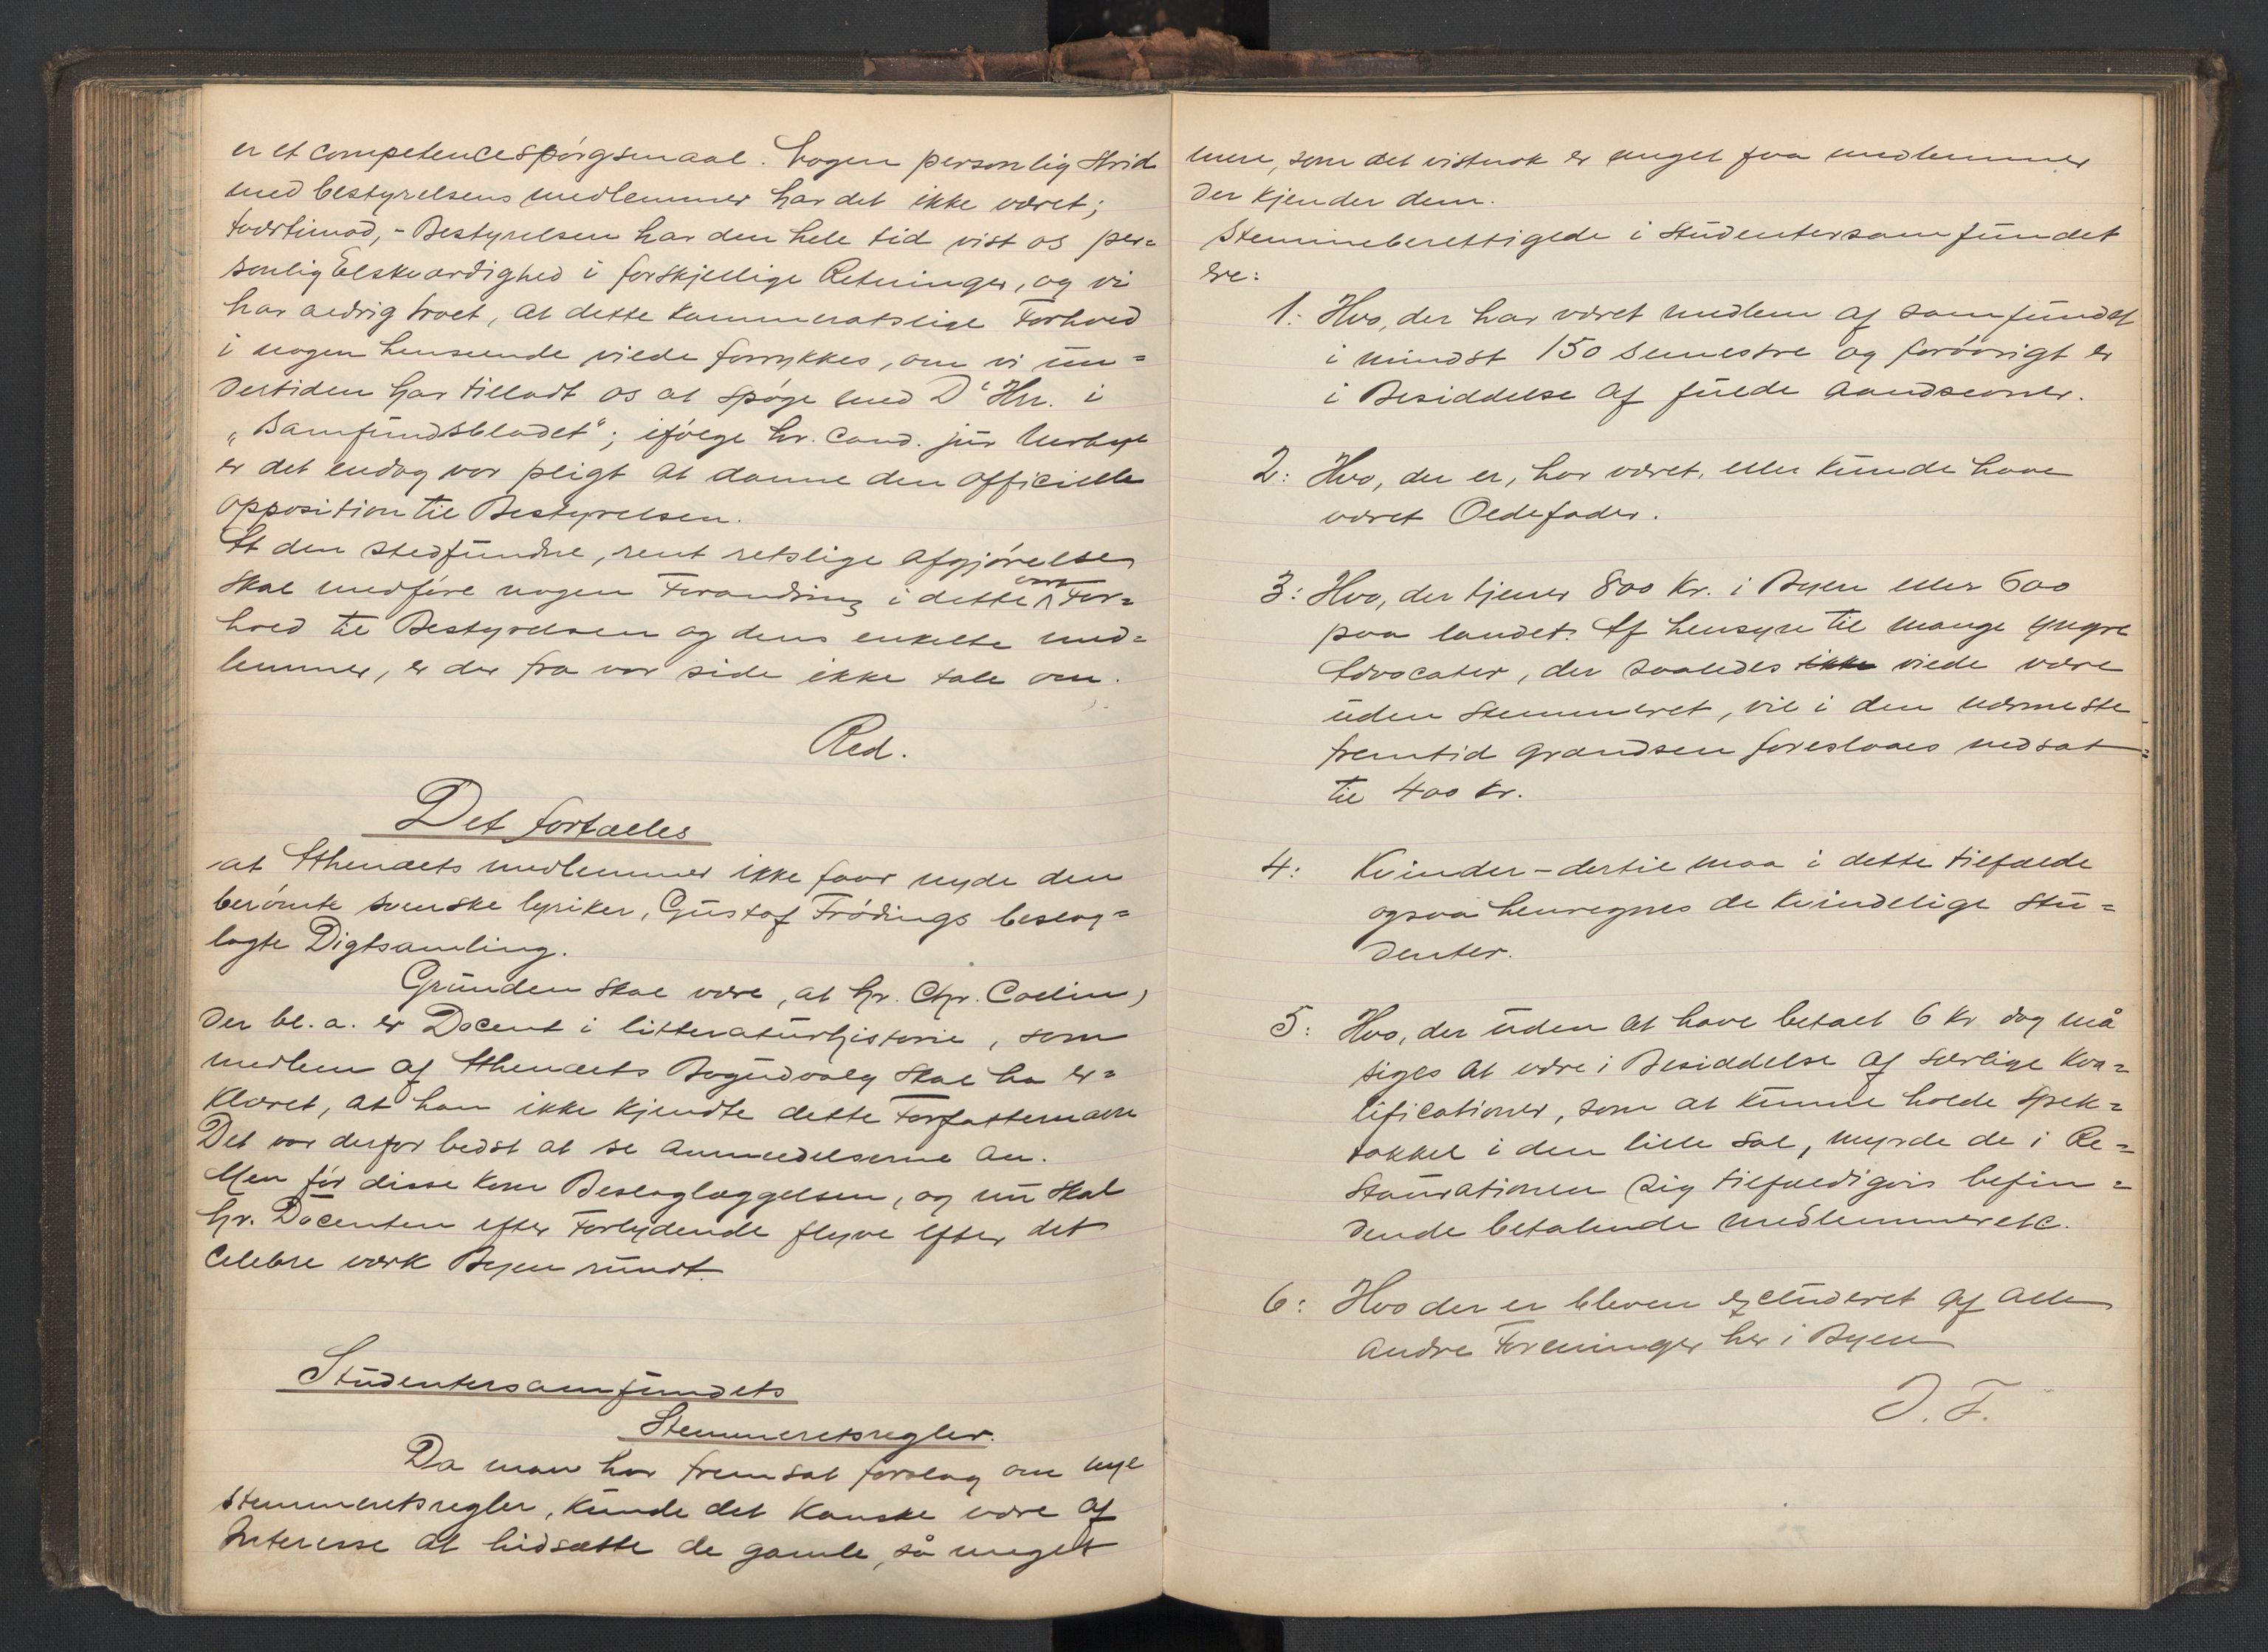 er et Competencespörgsmaal. Nogen personlig Strid
med bestyrelsens medlemmer har det ikke været;
tværtimod, - Bestyrelsen har den hele tid vist os per=
sonlig Elskværdighed i forskjellige Retninger, og vi
har aldrig troet, at dette kammeratslige Forhold
i nogen henseende vilde forrykkes, om vi un=
dertiden har tilladt os at spöge med D'Hrr. i
„Samfundsbladet"; ifölge hr. Cand. jur
er det endog vor pligt at danne den officielle
opposition til Bestyrelsen.
At den stedfundne, rent retslige afgjörelse
skal medföre nogen Forandring i dette vort For=
hold til Bestyrelsen og dens enkelte med=
lemmer, er der fra vor side ikke tale om.
Red.
Det fortælles
at Athenæets medlemmer ikke faar nyde den
berömte svenske lyriker, Gustaf Frödings beslag=
lagte Digtsamling.
Grunden skal være, at hr. Chr. Collin,
der bl. a. er Docent i litteraturhistorie, som
medlem af Athenæets Bogudvalg skal ha er=
klæret, at han ikke kjendte dette Forfatternavn
Det var derfor bedst at se Anmeldelserne an.
Men för disse kom Beslaglæggelsen, og nu skal
hr. Docenten efter Forlydende flyve efter det
celebre værk Byen rundt.
Studentersamfundets
Stemmeretsregler.
Da man har fremsat forslag om nye
stemmeretsregler, kunde det kanske være af
Interesse at hidsætte de gamle, så meget
mere, som det vistnok er meget faa medlemmer
der kjender dem.
Stemmeberettigede i Studentersamfundet
ere:
1: Hvo, der har været medlem af samfundet
i mindst 150 semestre og forövrigt er
i Besiddelse af fulde aandsevner.
2: Hvo, der er, har været, eller kunde have
været Oldefader.
3: Hvo, der tjener 800 Kr. i Byen eller 600
paa landet. Af hensyn til mange yngre
Advocater, der saaledes ikke vilde være
uden stemmeret, vil i den nærmeste
fremtid grændsen foreslaaes nedsat
til 400 kr.
4: Kvinder - dertil maa i dette tilfælde
ogsaa henregnes de kvindelige stu=
denter.
5: Hvo, der uden at have betalt 6 kr dog må
siges at være i Besiddelse af særlige Kva=
lificationer, som at kunne holde spek=
takkel i den lille sal, myrde de i Re=
staurationen sig tilfældigvis befin=
dende betalende medlemmer etc.
6: Hvo der er bleven excluderet af alle
andre Foreninger her i Byen
J. F.